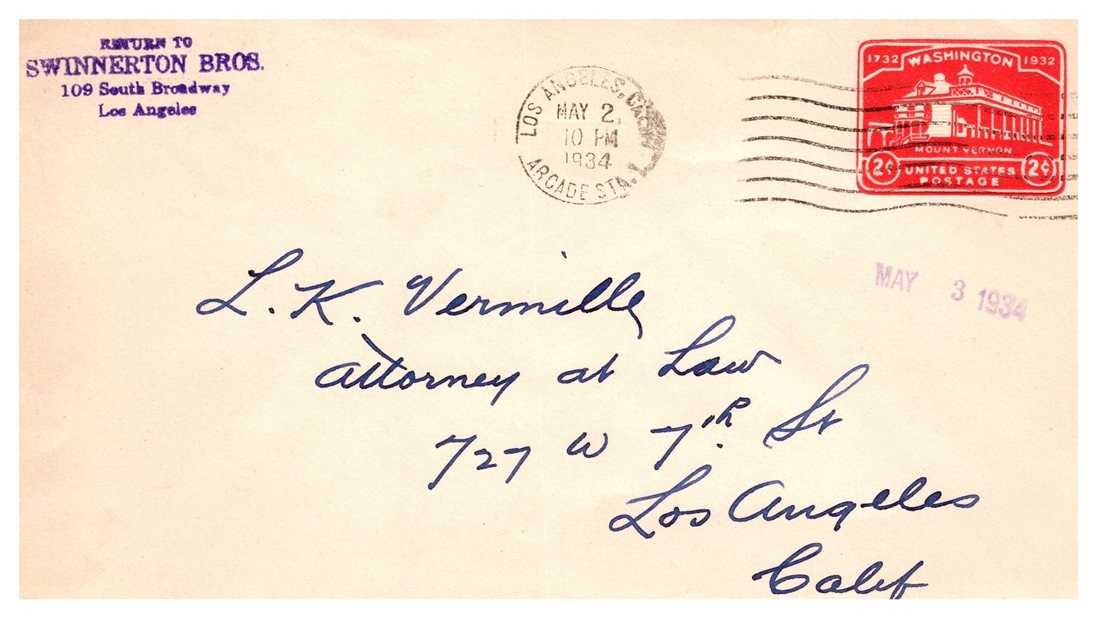 RETURN TO
SWINNERTON BROS.
109 South Broadway
Los Angeles
LOS ANGELES, CALIF.
MAY 2
10 PM
1934
ARCADE STA. 1
1732 WASHINGTON 1932
MOUNT VERNON
2¢ UNITED STATES 2¢
POSTAGE
MAY 3 1934
L. K. Vermille
Attorney at Law
727 W 7th St
Los Angeles
Calif